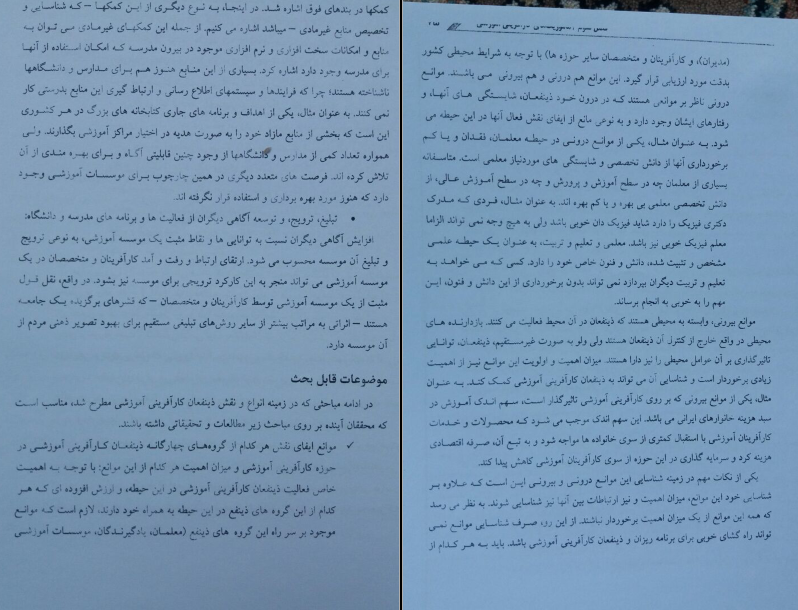 کمکها در بندهای فوق اشاره شد. در اینجا، به نوع دیگری از این کمکها – که شناسایی و
تخصیص منابع غیرمادی – میباشد اشاره می کنیم. از جمله این کمکهای غیرمادی می توان به
منابع و امکانات سخت افزاری و نرم افزاری موجود در بیرون مدرسه که امکان استفاده از آنها
برای مدرسه وجود دارد اشاره کرد. بسیاری از این منابع هنوز هم برای مدارس و دانشگاهها
ناشناخته هستند؛ چرا که فرایندها و سیستمهای اطلاع رسانی و ارتباط گیری این منابع بدرستی کار
نمی کنند. به عنوان مثال، یکی از اهداف و برنامه های جاری کتابخانه های بزرگ در هر کشوری
این است که بخشی از منابع مازاد خود را به صورت هدیه در اختیار مراکز آموزشی بگذارند. ولی
همواره تعداد کمی از مدارس و دانشگاهها از وجود چنین قابلیتی آگاه و برای بهره مندی از آن
تلاش کرده اند. فرصت های متعدد دیگری در همین چارچوب برای موسسات آموزشی وجود
دارد که هنوز مورد بهره برداری و استفاده قرار نگرفته اند.
• تبلیغ، ترویج، و توسعه آگاهی دیگران از فعالیت ها و برنامه های مدرسه و دانشگاه:
افزایش آگاهی دیگران نسبت به توانایی ها و نقاط مثبت یک موسسه آموزشی، به نوعی ترویج
و تبلیغ آن موسسه محسوب می شود. ارتقای ارتباط و رفت و آمد کارآفرینان و متخصصان در یک
موسسه آموزشی می تواند منجر به این کارکرد ترویجی برای موسسه نیز بشود. در واقع، نقل قول
مثبت از یک موسسه آموزشی توسط کارآفرینان و متخصصان – که قشرهای برگزیده یک جامعه
هستند – اثراتی به مراتب بیشتر از سایر روش‌های تبلیغی مستقیم برای بهبود تصویر ذهنی مردم از
آن موسسه دارد.
موضوعات قابل بحث
در ادامه مباحثی که در زمینه انواع و نقش ذینفعان کارآفرینی آموزشی مطرح شد، مناسب است
که محققان آینده بر روی مباحث زیر مطالعات و تحقیقاتی داشته باشند.
✓ موانع ایفای نقش هر کدام از گروه‌های چهارگانه ذینفعان کارآفرینی آموزشی در
حوزه کارآفرینی آموزشی و میزان اهمیت هر کدام از این موانع: با توجه به اهمیت
خاص فعالیت ذینفعان کارآفرینی آموزشی در این حیطه، و ارزش افزوده ای که هر
کدام از این گروه های ذینفع در این حیطه به همراه خود دارند، لازم است که موانع
موجود بر سر راه این گروه های ذینفع (معلمان، یادگیرندگان، موسسات آموزشی
(مدیران)، و کارآفرینان و متخصصان سایر حوزه ها) با توجه به شرایط محیطی کشور
بدقت مورد ارزیابی قرار گیرد. این موانع هم درونی و هم بیرونی می باشند. موانع
درونی ناظر بر موانعی هستند که در درون خود ذینفعان، شایستگی های آنها، و
رفتارهای ایشان وجود دارد و به نوعی مانع از ایفای نقش فعال آنها در این حیطه می
شود. به عنوان مثال، یکی از موانع درونی در حیطه معلمان، فقدان و یا کم
برخورداری آنها از دانش تخصصی و شایستگی های موردنیاز معلمی است. متاسفانه
بسیاری از معلمان چه در سطح آموزش و پرورش و چه در سطح آموزش عالی، از
دانش تخصصی معلمی بی بهره و یا کم بهره اند. به عنوان مثال، فردی که مدرک
دکتری فیزیک را دارد شاید فیزیک دان خوبی باشد ولی به هیچ وجه نمی تواند الزاما
معلم فیزیک خوبی نیز باشد. معلمی و تعلیم و تربیت، به عنوان یک حیطه علمی
مشخص و تثبیت شده، دانش و فنون خاص خود را دارد. کسی که می خواهد به
تعلیم و تربیت دیگران بپردازد نمی تواند بدون برخورداری از این دانش و فنون، این
مهم را به خوبی به انجام برساند.
موانع بیرونی، وابسته به محیطی هستند که ذینفعان در آن محیط فعالیت می کنند. بازدارنده های
محیطی در واقع خارج از کنترل آن ذینفعان هستند ولی ولو به صورت غیرمستقیم، ذینفعان، توانایی
تاثیرگذاری بر آن عوامل محیطی را نیز دارا هستند. میزان اهمیت و اولویت این موانع نیز از اهمیت
زیادی برخوردار است و شناسایی آن می تواند به ذینفعان کارآفرینی آموزشی کمک کند. به عنوان
مثال، یکی از موانع بیرونی که بر روی کارآفرینی آموزشی تاثیرگذار است، سهم اندک آموزش در
سبد هزینه خانوارهای ایرانی می باشد. این سهم اندک موجب می شود که محصولات و خدمات
کارآفرینان آموزشی با استقبال کمتری از سوی خانواده ها مواجه شود و به تبع آن، صرفه اقتصادی
هزینه کرد و سرمایه گذاری در این حوزه از سوی کارآفرینان آموزشی کاهش پیدا کند.
یکی از نکات مهم در زمینه شناسایی این موانع درونی و بیرونی این است که علاوه بر
شناسایی خود این موانع، میزان اهمیت و نیز ارتباطات بین آنها نیز شناسایی شوند. به نظر می رسد
که همه این موانع از یک میزان اهمیت برخوردار نباشند. از این رو، صرف شناسایی موانع نمی
تواند راه گشای خوبی برای برنامه ریزان و ذینفعان کارآفرینی آموزشی باشد. باید به هر کدام از